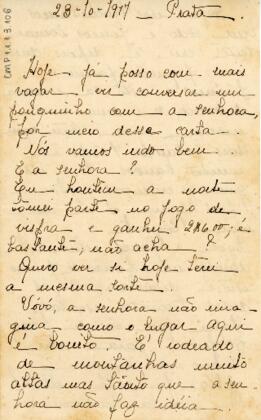 23-10-1917 _ Prata.
Hoje já posso com mais
vagar, vir conversar um
pouquinho com a senhora,
por meio dessa carta.
Nós vamos indo bem.
E a senhora?
Eu hontem a noite
tomei parte no jogo de
vispra e ganhei 2$600; é
bastante, não acha?
Quero ver si hoje terei
a mesma sorte.
Vóvó, a senhora não ima-
gina como o lugar aqui
é bonito. É rodeado
de montanhas muito
altas mas tanto que a se-
nhora não faz idéia.